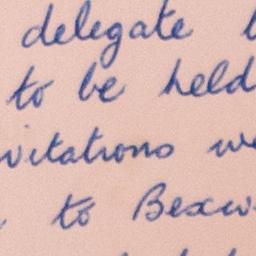 delegate
to be held
vitations we
to Bexw